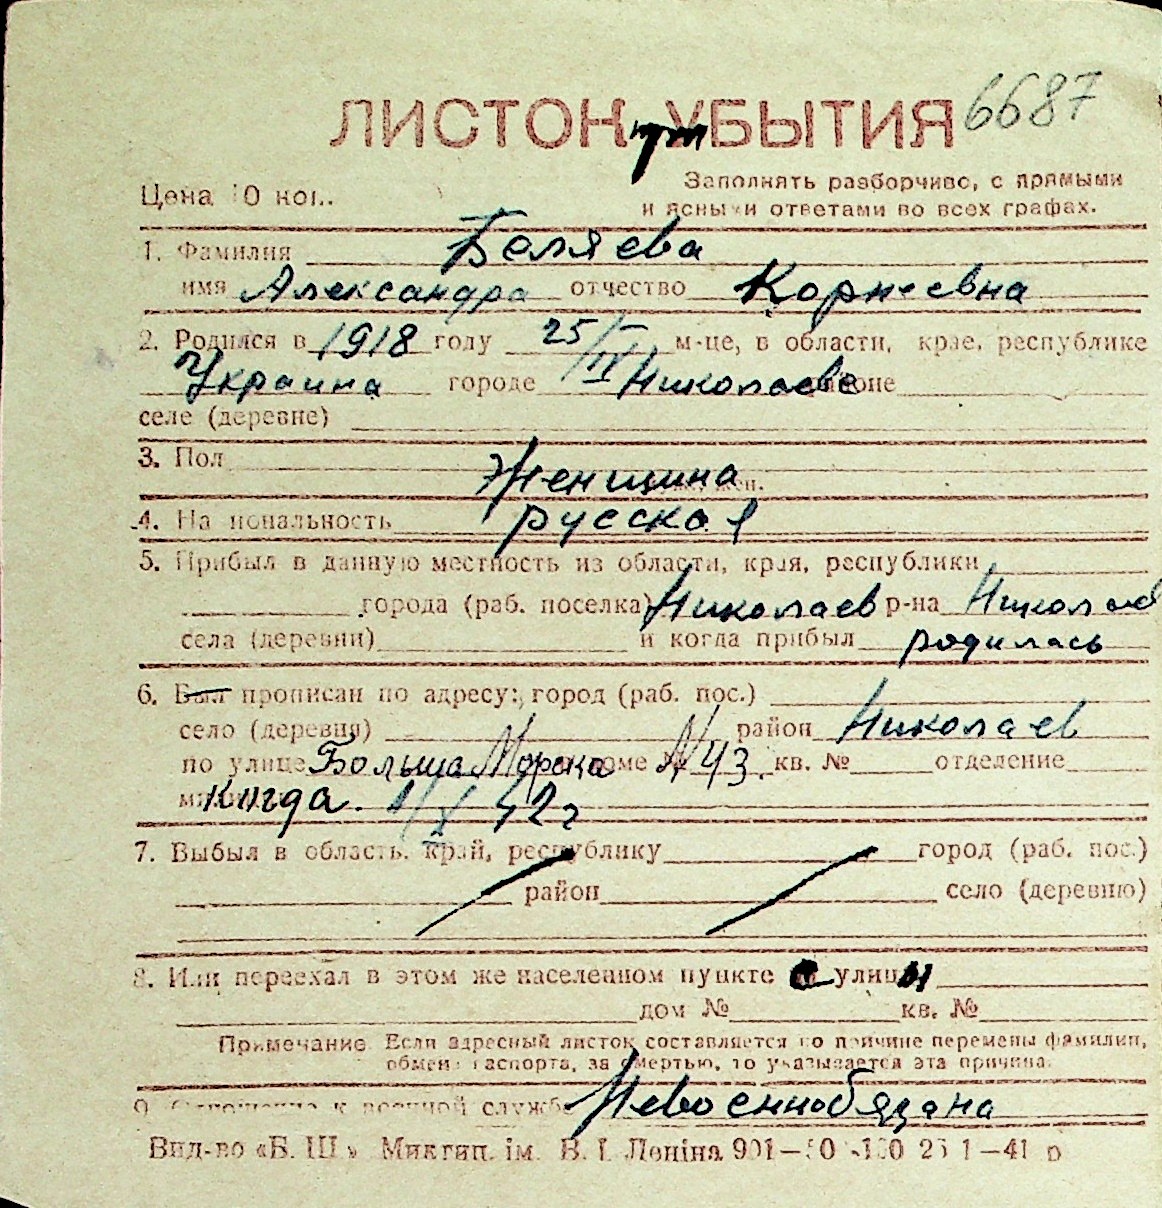 ЛИСТОК УБЫТИЯ 6687
при
Цена 10 коп.
Заполнять разборчиво, с прямыми
и ясными ответами во всех графах.
1. Фамилия Беляева
имя Александра отчество Корнеевна
2. Родился в 1918 году 25/IV м-це, в области, крае, республике
Украина городе Николаеве районе
селе (деревне)
3. Пол Женщина жен.
4. Национальность русская
5. Прибыл в данную местность из области, края, республики
города (раб. поселка) Николаев р-на Николаев
села (деревни) и когда прибыл родилась
6. Был прописан по адресу: город (раб. пос.)
село (деревня) район Николаев
по улице Больша Морска доме № 43. кв. № отделение
Когда. 1/X 42г
7. Выбыл в область, край, республику город (раб. пос.)
район село (деревню)
8. Или переехал в этом же населенном пункте с улицы
дом № кв. №
Примечание Если адресный листок составляется по причине перемены фамилии,
обмена паспорта, за смертью, то указывается эта причина.
9. Отношение к военной службе Невоеннобязана
Вид-во «Б. Ш.» Микгип. ім. В. І. Леніна 901—50